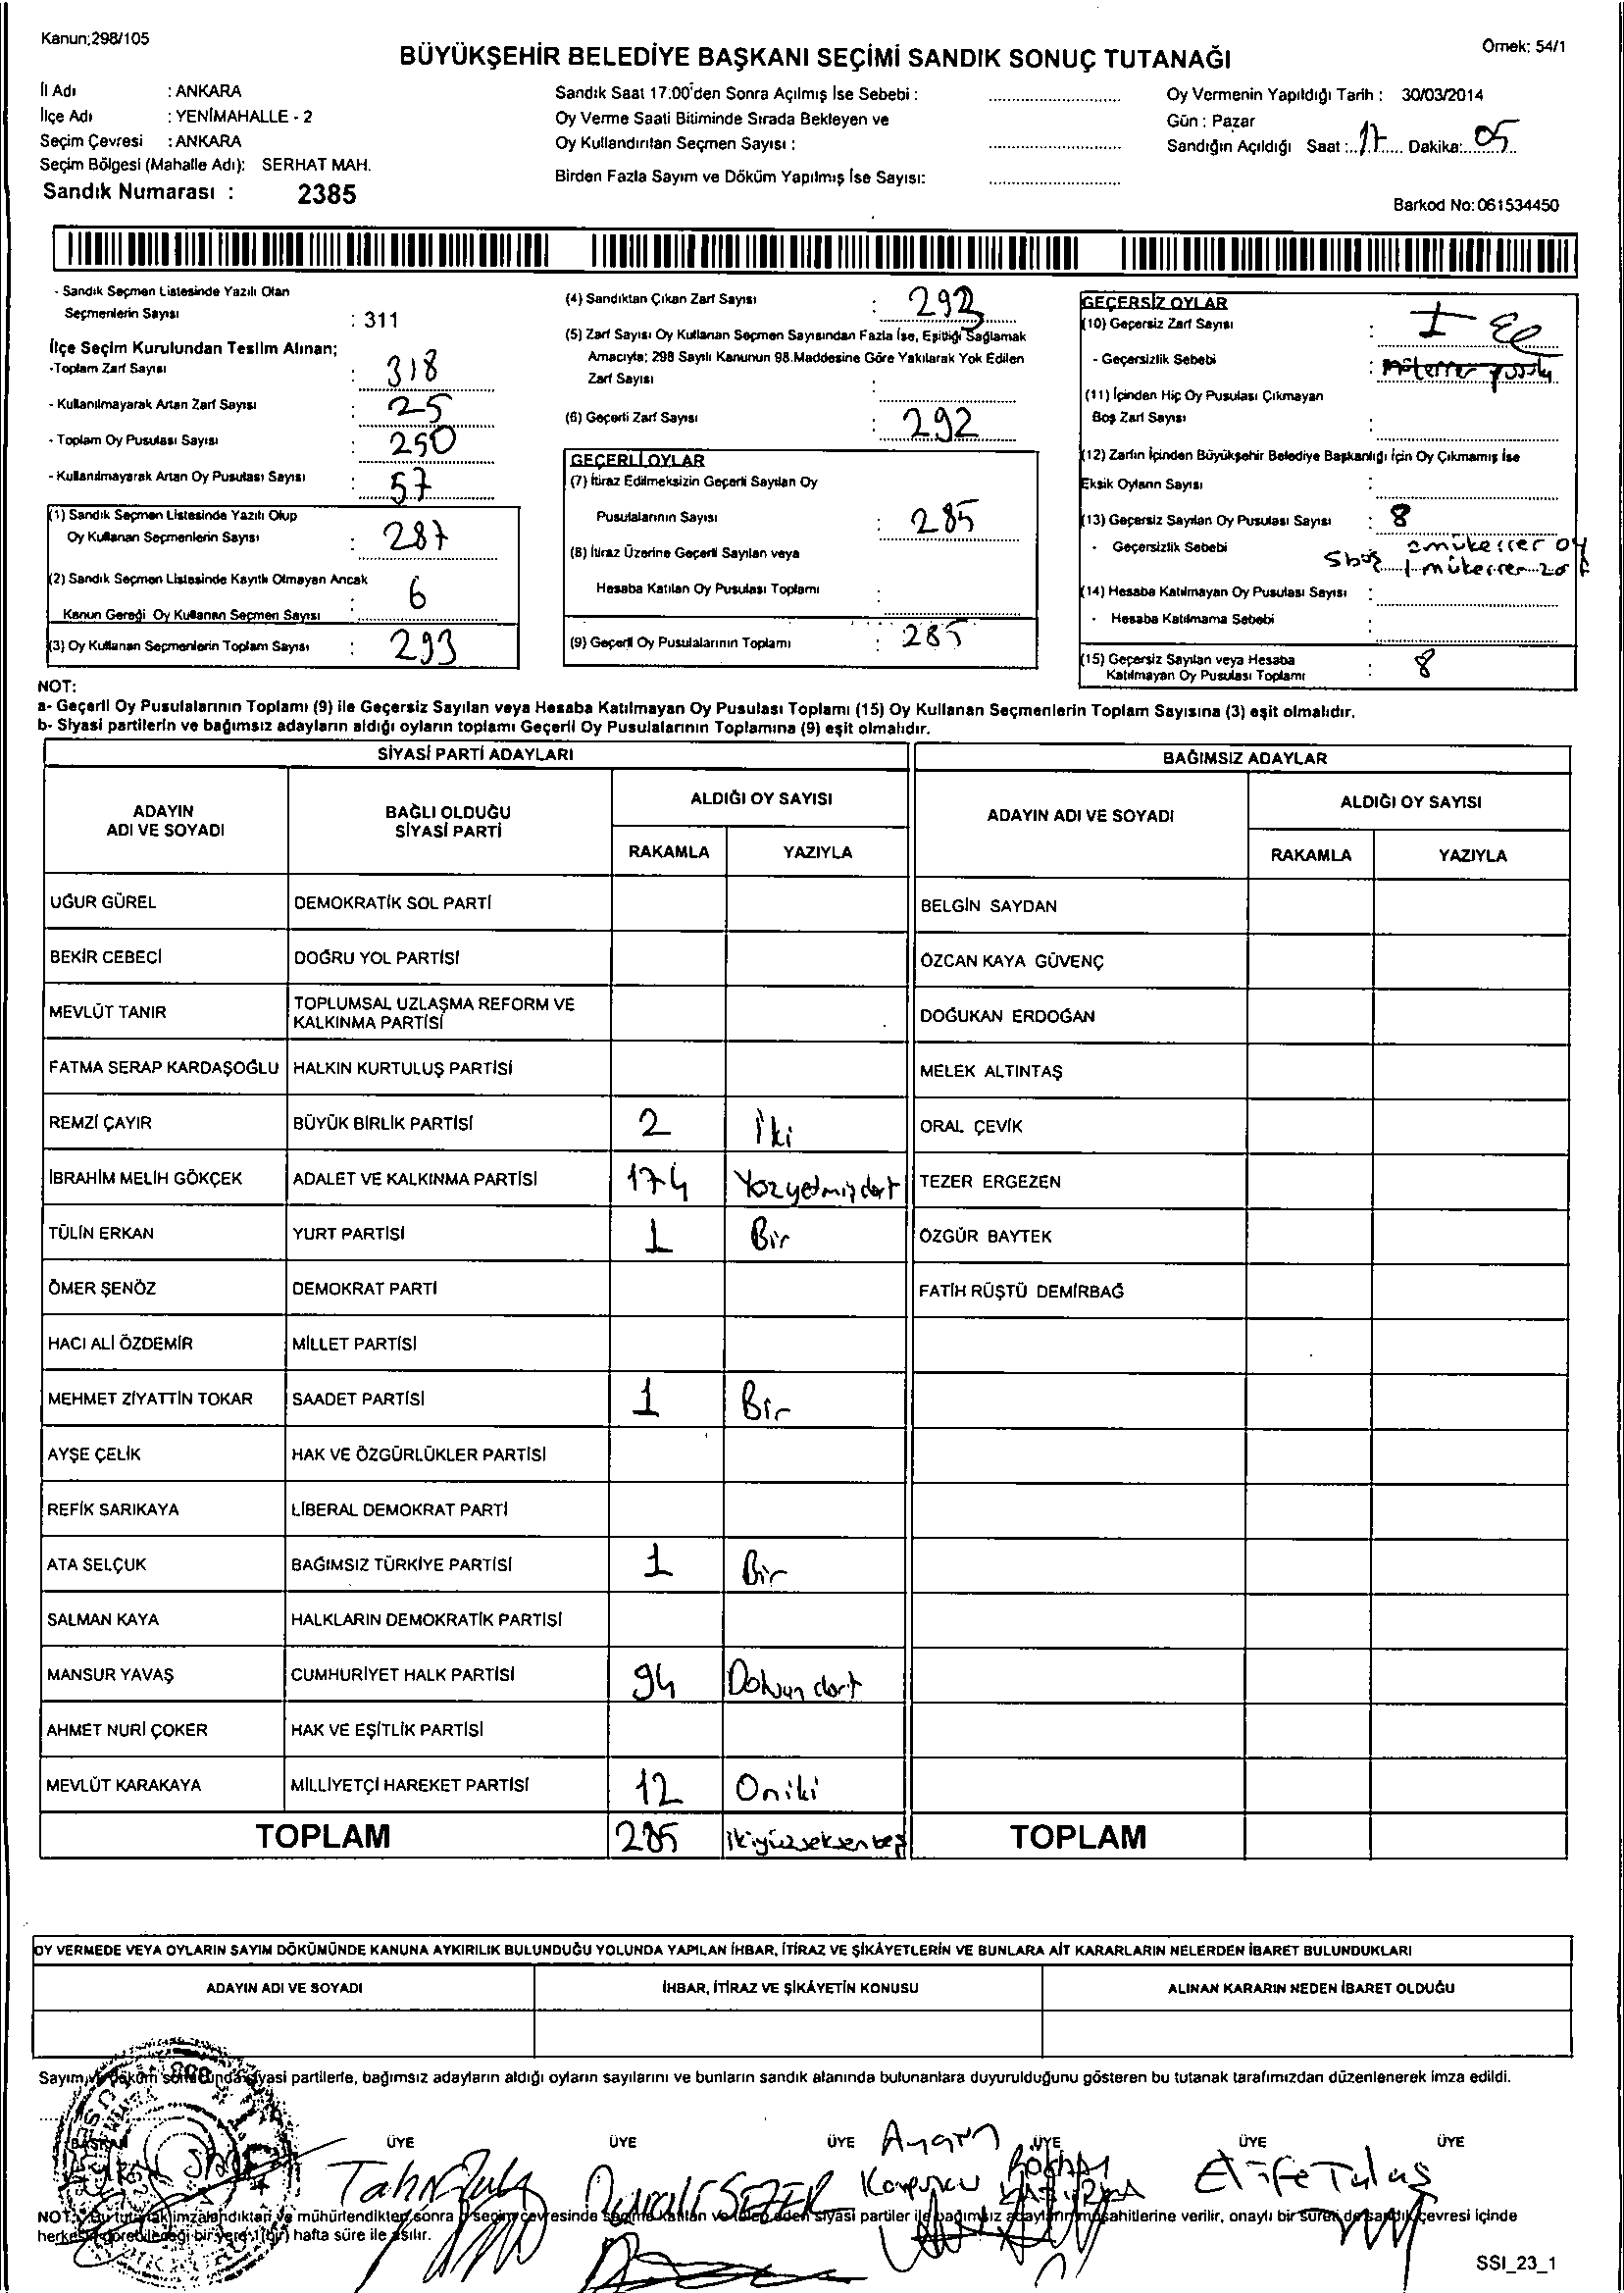 Kanun;298/105
Örnek: 54/1
BÜYÜKŞEHİR BELEDİYE BAŞKANI SEÇİMİ SANDIK SONUÇ TUTANAĞI
İl Adı : ANKARA
İlçe Adı : YENİMAHALLE - 2
Seçim Çevresi : ANKARA
Seçim Bölgesi (Mahalle Adı): SERHAT MAH.
Sandık Numarası : 2385
Sandık Saat 17:00'den Sonra Açılmış İse Sebebi :
Oy Verme Saati Bitiminde Sırada Bekleyen ve
Oy Kullandırılan Seçmen Sayısı :
Birden Fazla Sayım ve Döküm Yapılmış İse Sayısı:
Oy Vermenin Yapıldığı Tarih : 30/03/2014
Gün : Pazar
Sandığın Açıldığı Saat : 17 Dakika: 05
Barkod No: 061534450
- Sandık Seçmen Listesinde Yazılı Olan
Seçmenlerin Sayısı : 311
İlçe Seçim Kurulundan Teslim Alınan;
-Toplam Zarf Sayısı : 318
- Kullanılmayarak Artan Zarf Sayısı : 25
- Toplam Oy Pusulası Sayısı :
- Kullanılmayarak Artan Oy Pusulası Sayısı : 57
(1) Sandık Seçmen Listesinde Yazılı Olup
Oy Kullanan Seçmenlerin Sayısı : 287
(2) Sandık Seçmen Listesinde Kayıtlı Olmayan Ancak
Kanun Gereği Oy Kullanan Seçmen Sayısı : 6
(3) Oy Kullanan Seçmenlerin Toplam Sayısı : 293
(4) Sandıktan Çıkan Zarf Sayısı :
(5) Zarf Sayısı Oy Kullanan Seçmen Sayısından Fazla İse, Eşitliği Sağlamak
Amacıyla; 298 Sayılı Kanunun 98.Maddesine Göre Yakılarak Yok Edilen
Zarf Sayısı :
(6) Geçerli Zarf Sayısı : 292
GEÇERLİ OYLAR
(7) İtiraz Edilmeksizin Geçerli Sayılan Oy
Pusulalarının Sayısı : 285
(8) İtiraz Üzerine Geçerli Sayılan veya
Hesaba Katılan Oy Pusulası Toplamı :
(9) Geçerli Oy Pusulalarının Toplamı : 285
GEÇERSİZ OYLAR
(10) Geçersiz Zarf Sayısı : I
- Geçersizlik Sebebi :
(11) İçinden Hiç Oy Pusulası Çıkmayan
Boş Zarf Sayısı :
(12) Zarfın İçinden Büyükşehir Belediye Başkanlığı İçin Oy Çıkmamış İse
Eksik Oyların Sayısı :
(13) Geçersiz Sayılan Oy Pusulası Sayısı : 8
- Geçersizlik Sebebi 5 boş 2 mükerrer oy
1 mükerrer zarf
(14) Hesaba Katılmayan Oy Pusulası Sayısı :
- Hesaba Katılmama Sebebi :
(15) Geçersiz Sayılan veya Hesaba
Katılmayan Oy Pusulası Toplamı : 8
NOT:
a- Geçerli Oy Pusulalarının Toplamı (9) ile Geçersiz Sayılan veya Hesaba Katılmayan Oy Pusulası Toplamı (15) Oy Kullanan Seçmenlerin Toplam Sayısına (3) eşit olmalıdır.
b- Siyasi partilerin ve bağımsız adayların aldığı oyların toplamı Geçerli Oy Pusulalarının Toplamına (9) eşit olmalıdır.
SİYASİ PARTİ ADAYLARI
BAĞIMSIZ ADAYLAR
ADAYIN ADI VE SOYADI
BAĞLI OLDUĞU SİYASİ PARTİ
ALDIĞI OY SAYISI
RAKAMLA YAZIYLA
ADAYIN ADI VE SOYADI
ALDIĞI OY SAYISI
RAKAMLA YAZIYLA
UĞUR GÜREL DEMOKRATİK SOL PARTİ BELGİN SAYDAN
BEKİR CEBECİ DOĞRU YOL PARTİSİ ÖZCAN KAYA GÜVENÇ
MEVLÜT TANIR TOPLUMSAL UZLAŞMA REFORM VE KALKINMA PARTİSİ DOĞUKAN ERDOĞAN
FATMA SERAP KARDAŞOĞLU HALKIN KURTULUŞ PARTİSİ MELEK ALTINTAŞ
REMZİ ÇAYIR BÜYÜK BİRLİK PARTİSİ 2 İki ORAL ÇEVİK
İBRAHİM MELİH GÖKÇEK ADALET VE KALKINMA PARTİSİ 174 Yüzyetmişdört TEZER ERGEZEN
TÜLİN ERKAN YURT PARTİSİ 1 Bir ÖZGÜR BAYTEK
ÖMER ŞENÖZ DEMOKRAT PARTİ FATİH RÜŞTÜ DEMİRBAĞ
HACI ALİ ÖZDEMİR MİLLET PARTİSİ
MEHMET ZİYATTİN TOKAR SAADET PARTİSİ 1 Bir
AYŞE ÇELİK HAK VE ÖZGÜRLÜKLER PARTİSİ
REFİK SARIKAYA LİBERAL DEMOKRAT PARTİ
ATA SELÇUK BAĞIMSIZ TÜRKİYE PARTİSİ 1 Bir
SALMAN KAYA HALKLARIN DEMOKRATİK PARTİSİ
MANSUR YAVAŞ CUMHURİYET HALK PARTİSİ 94 Doksan dört
AHMET NURİ ÇOKER HAK VE EŞİTLİK PARTİSİ
MEVLÜT KARAKAYA MİLLİYETÇİ HAREKET PARTİSİ 12 Oniki
TOPLAM 285 ikiyüzseksenbeş TOPLAM
OY VERMEDE VEYA OYLARIN SAYIM DÖKÜMÜNDE KANUNA AYKIRILIK BULUNDUĞU YOLUNDA YAPILAN İHBAR, İTİRAZ VE ŞİKÂYETLERİN VE BUNLARA AİT KARARLARIN NELERDEN İBARET BULUNDUKLARI
ADAYIN ADI VE SOYADI İHBAR, İTİRAZ VE ŞİKÂYETİN KONUSU ALINAN KARARIN NEDEN İBARET OLDUĞU
Sayım ve döküm sonucunda siyasi partilerle, bağımsız adayların aldığı oyların sayılarını ve bunların sandık alanında bulunanlara duyurulduğunu gösteren bu tutanak tarafımızdan düzenlenerek imza edildi.
BAŞKAN ÜYE ÜYE ÜYE ÜYE ÜYE ÜYE
Elife Tulaş
NOT: Bu tutanak imzalandıktan ve mühürlendikten sonra seçim çevresinde seçime katılan ve talep eden siyasi partiler ile bağımsız adayların müşahitlerine verilir, onaylı bir sureti de sandık çevresi içinde
herkesin görebileceği bir yere 1(bir) hafta süre ile asılır.
SSI_23_1